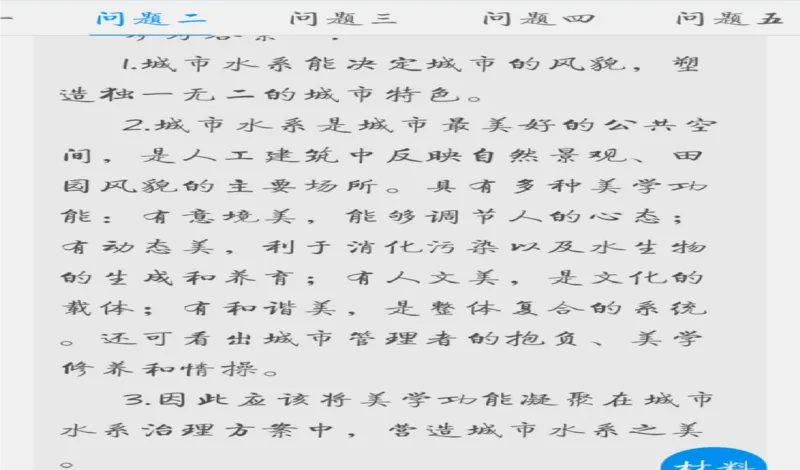 一 问题二 问题三 问题四 问题五
1.城市水系能决定城市的风貌，塑
造独一无二的城市特色。
2.城市水系是城市最美好的公共空
间，是人工建筑中反映自然景观、田
园风貌的主要场所。具有多种美学功
能：有意境美，能够调节人的心态；
有动态美，利于消化污染以及水生物
的生成和养育；有人文美，是文化的
载体；有和谐美，是整体复合的系统
。还可看出城市管理者的抱负、美学
修养和情操。
3.因此应该将美学功能凝聚在城市
水系治理方案中，营造城市水系之美
。
材料